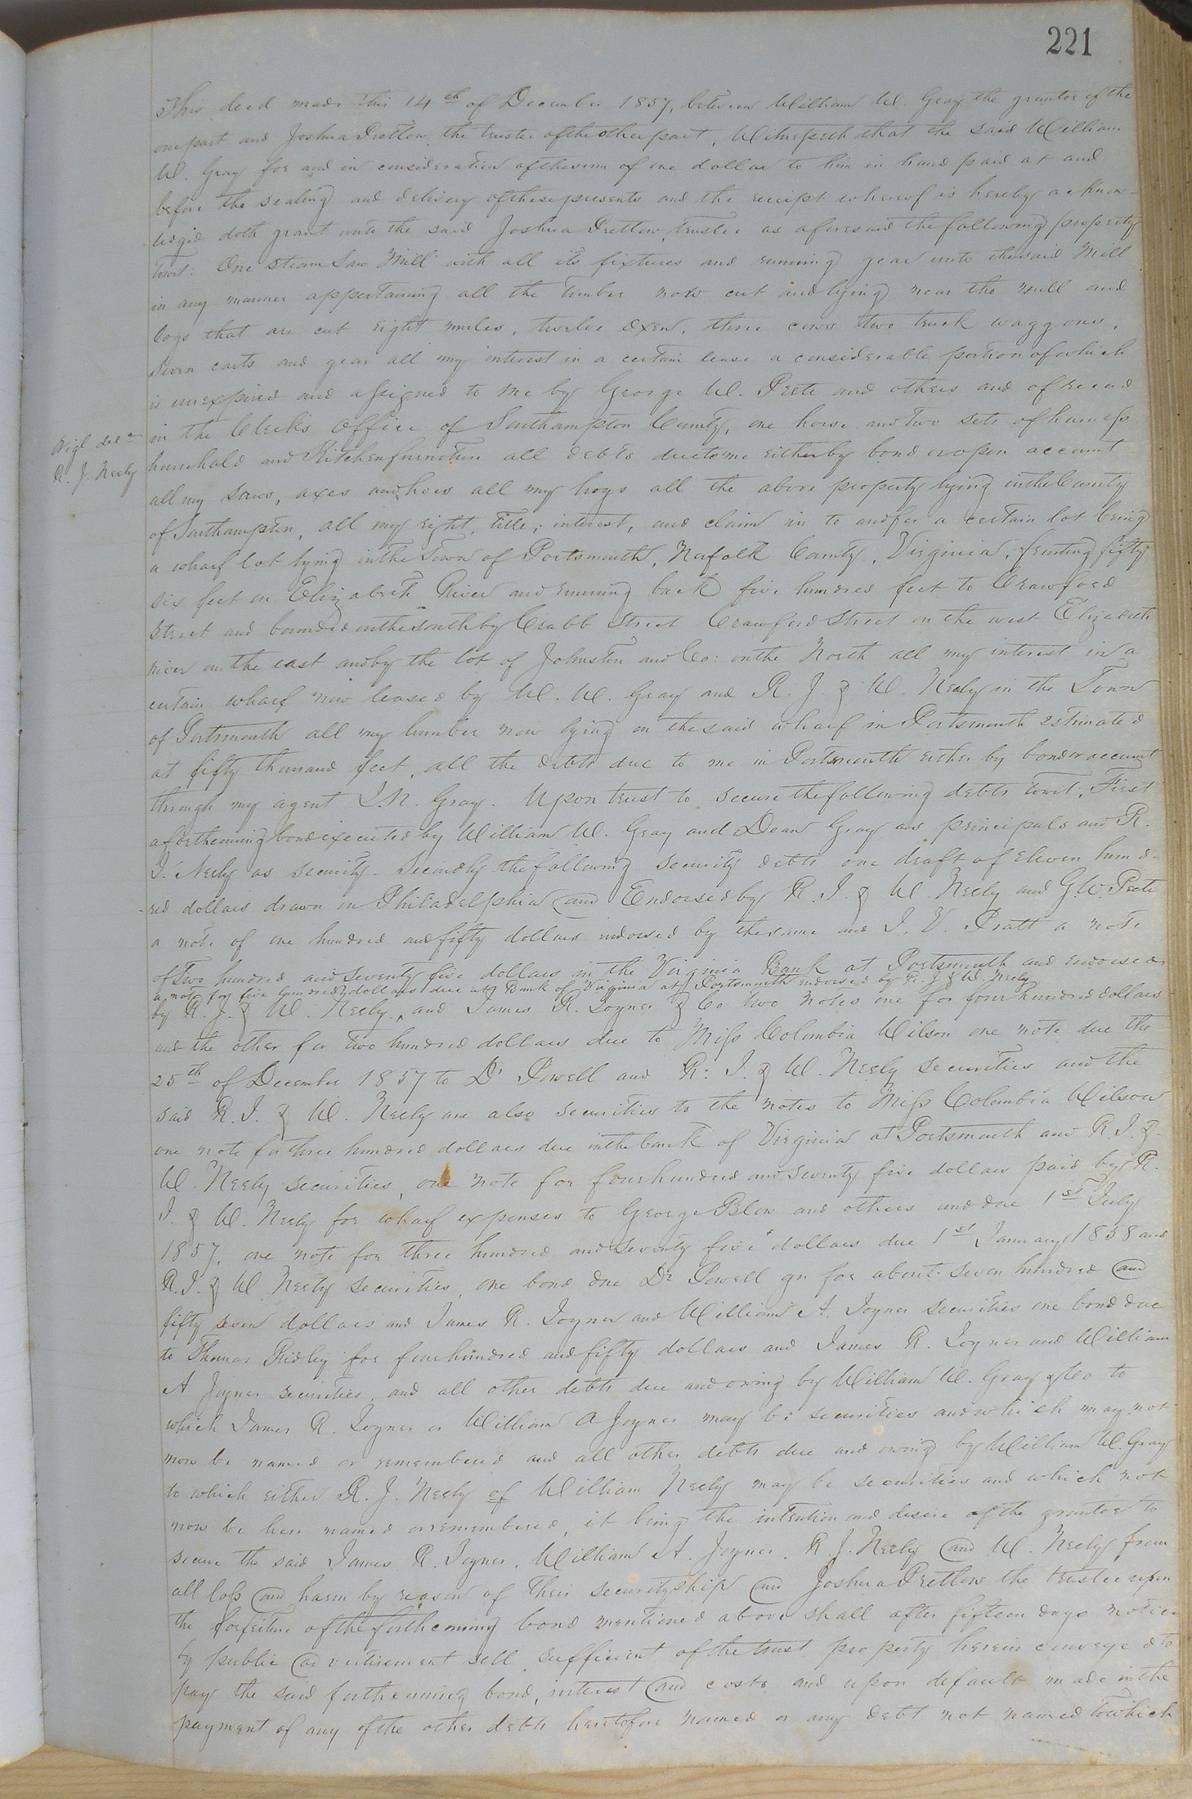 221
This deed made this 14th of December 1857, between William W. Gray the grantor of the
one part and Joshua Pretlow, the trustee of the other part, Witnesseth that the said William
W. Gray for and in consideration of the sum of one dollar to him in hand paid at and
before the sealing and delivery of these presents and the receipt whereof is hereby acknow-
ledged doth grant unto the said Joshua Pretlow, trustee as aforesaid the following property
towit: One Steam Saw Mill with all its fixtures and running gear unto the said Mill
in any manner appertaining all the timber now cut and lying near the mill and
logs that are cut eight mules, twelve oxen, three cows two truck waggons,
Seven carts and gear all my interest in a certain lease a considerable portion of which
is unexpired and assigned to me by George W. Peete and others and of record
in the Clerks Office of Southampton County, one horse and two sets of harness
household and Kitchen furniture all debts due to me either by bond or open account
Origl deld
R. J. Neely
all my saws, axes and hoes all my hogs all the above property lying in the County
of Southampton, all my right, title, interest, and claim in to and for a certain lot being
a wharf lot lying in the Town of Portsmouth, Norfolk County, Virginia, fronting fifty
six feet on Elizabeth River and running back five hundred feet to Crawford
Street and bounded on the South by Crabb Street Crawford Street on the west Elizabeth
river on the east and by the lot of Johnston and Co: on the North all my interest in a
certain wharf now leased by W. W. Gray and R. J. & W. Neely in the Town
of Portsmouth all my lumber now lying on the said wharf in Portsmouth estimated
at fifty thousand feet, all the debts due to me in Portsmouth either by bond or account
through my agent J. N. Gray. Upon trust to secure the following debts towit, First
a forthcoming bond executed by William W. Gray and Dean Gray as principals and R.
J. Neely as security. Secondly the following security debts one draft of Eleven hund-
red dollars drawn on Philadelphia and Endorsed by R. J. & W Neely and G. W. Peete
a note of one hundred and fifty dollars indorsed by the same and J. V. Pratt a note
of Two hundred and Seventy five dollars in the Virginia Bank at Portsmouth and endorsed
a note for five hundred dollars due at Bank of Virginia at Portsmouth endorsed by R. J. & W Neely
by R. J. & W. Neely, and James R. Joyner & Co two notes one for four hundred dollars
and the other for two hundred dollars due to Miss Columbia Wilson one note due the
25th of December 1857 to Dr Powell and R. J. & W. Neely securities and the
said R. J. & W. Neely are also securities to the notes to Miss Columbia Wilson
one note for three hundred dollars due in the bank of Virginia at Portsmouth and R. J. &
W. Neely securities, one note for four hundred and seventy five dollars paid by R.
J. & W. Neely for wharf expenses to George Blow and others and due 1st July
1857, one note for three hundred and seventy five dollars due 1st January 1858 and
R. J. & W. Neely securities, one bond due Dr Powell gn for about seven hundred and
fifty seven dollars and James R. Joyner and William A. Joyner securities one bond due
to Thomas Ridley for four hundred and fifty dollars and James R. Joyner and William
A Joyner securities, and all other debts due and owing by William W. Gray also to
which James R. Joyner or William A Joyner may be securities and which may not
now be named or remembered and all other debts due and owing by William W. Gray
to which either R. J. Neely of William Neely may be securities and which not
now be here named or remembered, it being the intention and desire of the grantor to
secure the said James R. Joyner, William A. Joyner, R J. Neely and W. Neely from
all loss and harm by reason of their securityship and Joshua Pretlow the trustee upon
the forfeiture of the forthcoming bond mentioned above shall after fifteen days notice
by public advertisement sell sufficient of the trust property herein conveyed to
pay the said forthcoming bond, interest and costs and upon default made in the
payment of any of the other debts heretofore named or any debt not named to which